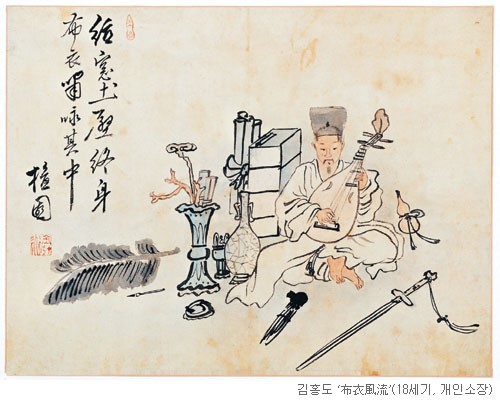 紙窓土壁終身
布衣嘯咏其中
檀園
김홍도 ‘布衣風流’(18세기, 개인소장)